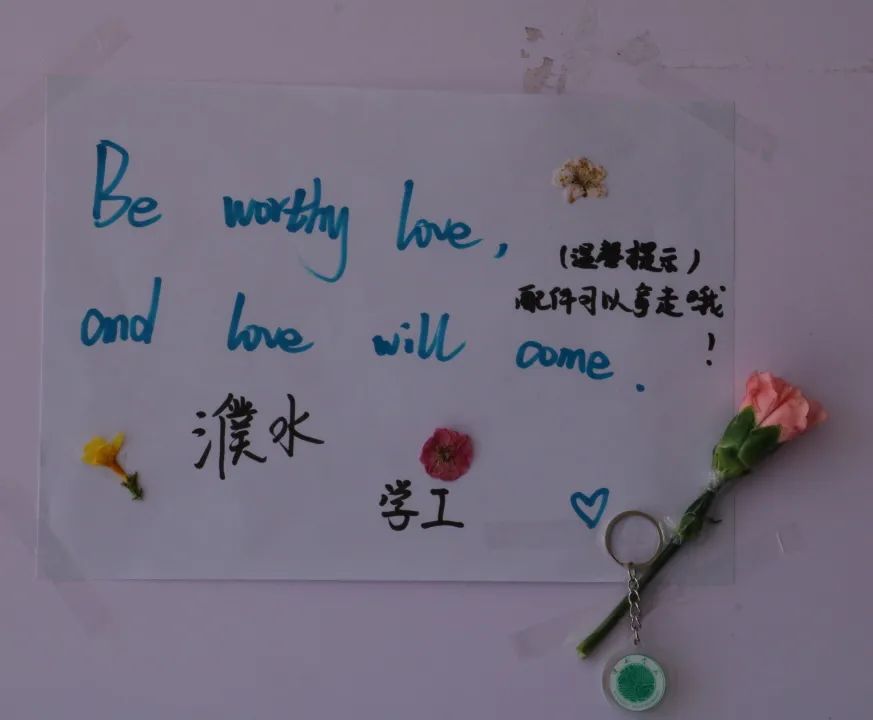 Be worthy love,
(温馨提示)
配件可以拿走哦
!
and love will come.
濮水
学工